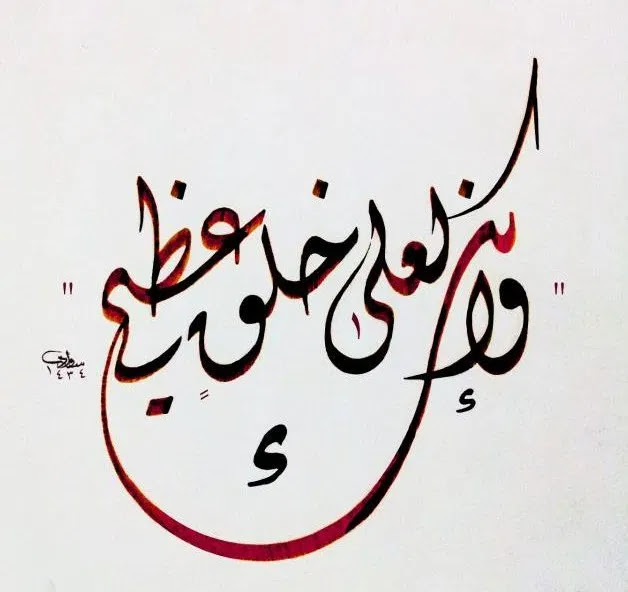 "وإنك لعلى خلقٍ عظيم"
١٤٣٤